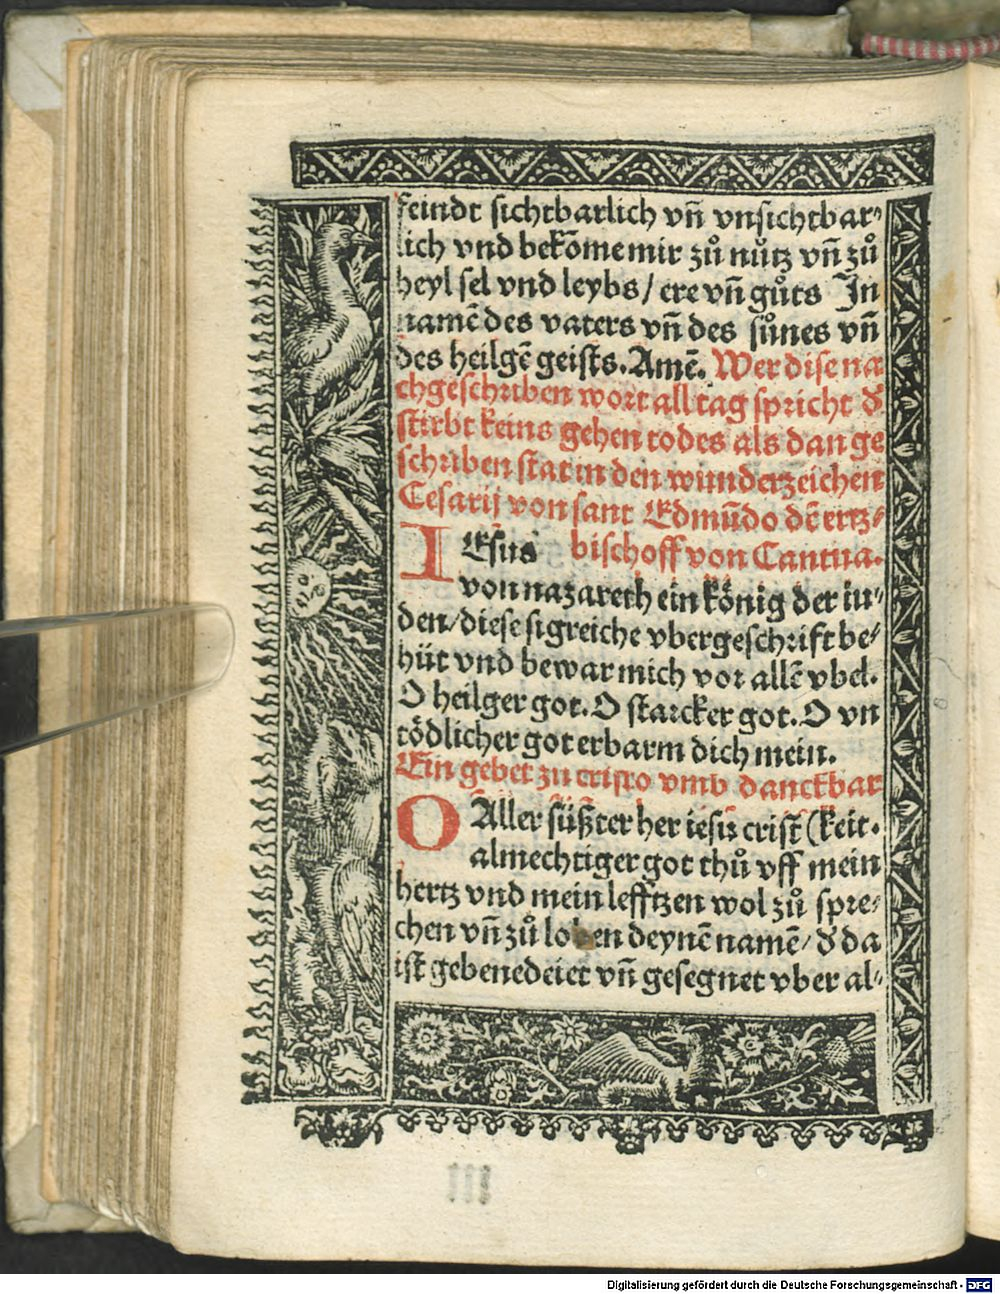 feindt sichtbarlich vñ vnsichtbar⸗
lich vnd bekõme mir zů nůtz vñ zů
heyl sel vnd leybs / ere vñ gůts In
namẽ des vaters vñ des sůnes vñ
des heilgẽ geists. Amẽ. Wer dise na
chgeschriben wort all tag spricht d̕
stirbt keins gehen todes als dan ge
schriben stat in den wunderzeichen
Cesarij von sant Edmũdo dẽ ertz⸗
IEsus bischoff von Cantua.
von nazareth ein könig der iu⸗
den / diese sigreiche vbergeschrift be⸗
hüt vnd bewar mich vor allẽ vbel.
O heilger got. O starcker got. O vn
tödlicher got erbarm dich mein.
Ein gebet zu cristo vmb danckbar
O Aller süßter her iesu crist (keit.
almechtiger got thů vff mein
hertz vnd mein lefftzen wol zů spre⸗
chen vñ zů loben deynẽ namẽ / d̕ da
ist gebenedeiet vñ gesegnet vber al⸗
Digitalisierung gefördert durch die Deutsche Forschungsgemeinschaft - DFG